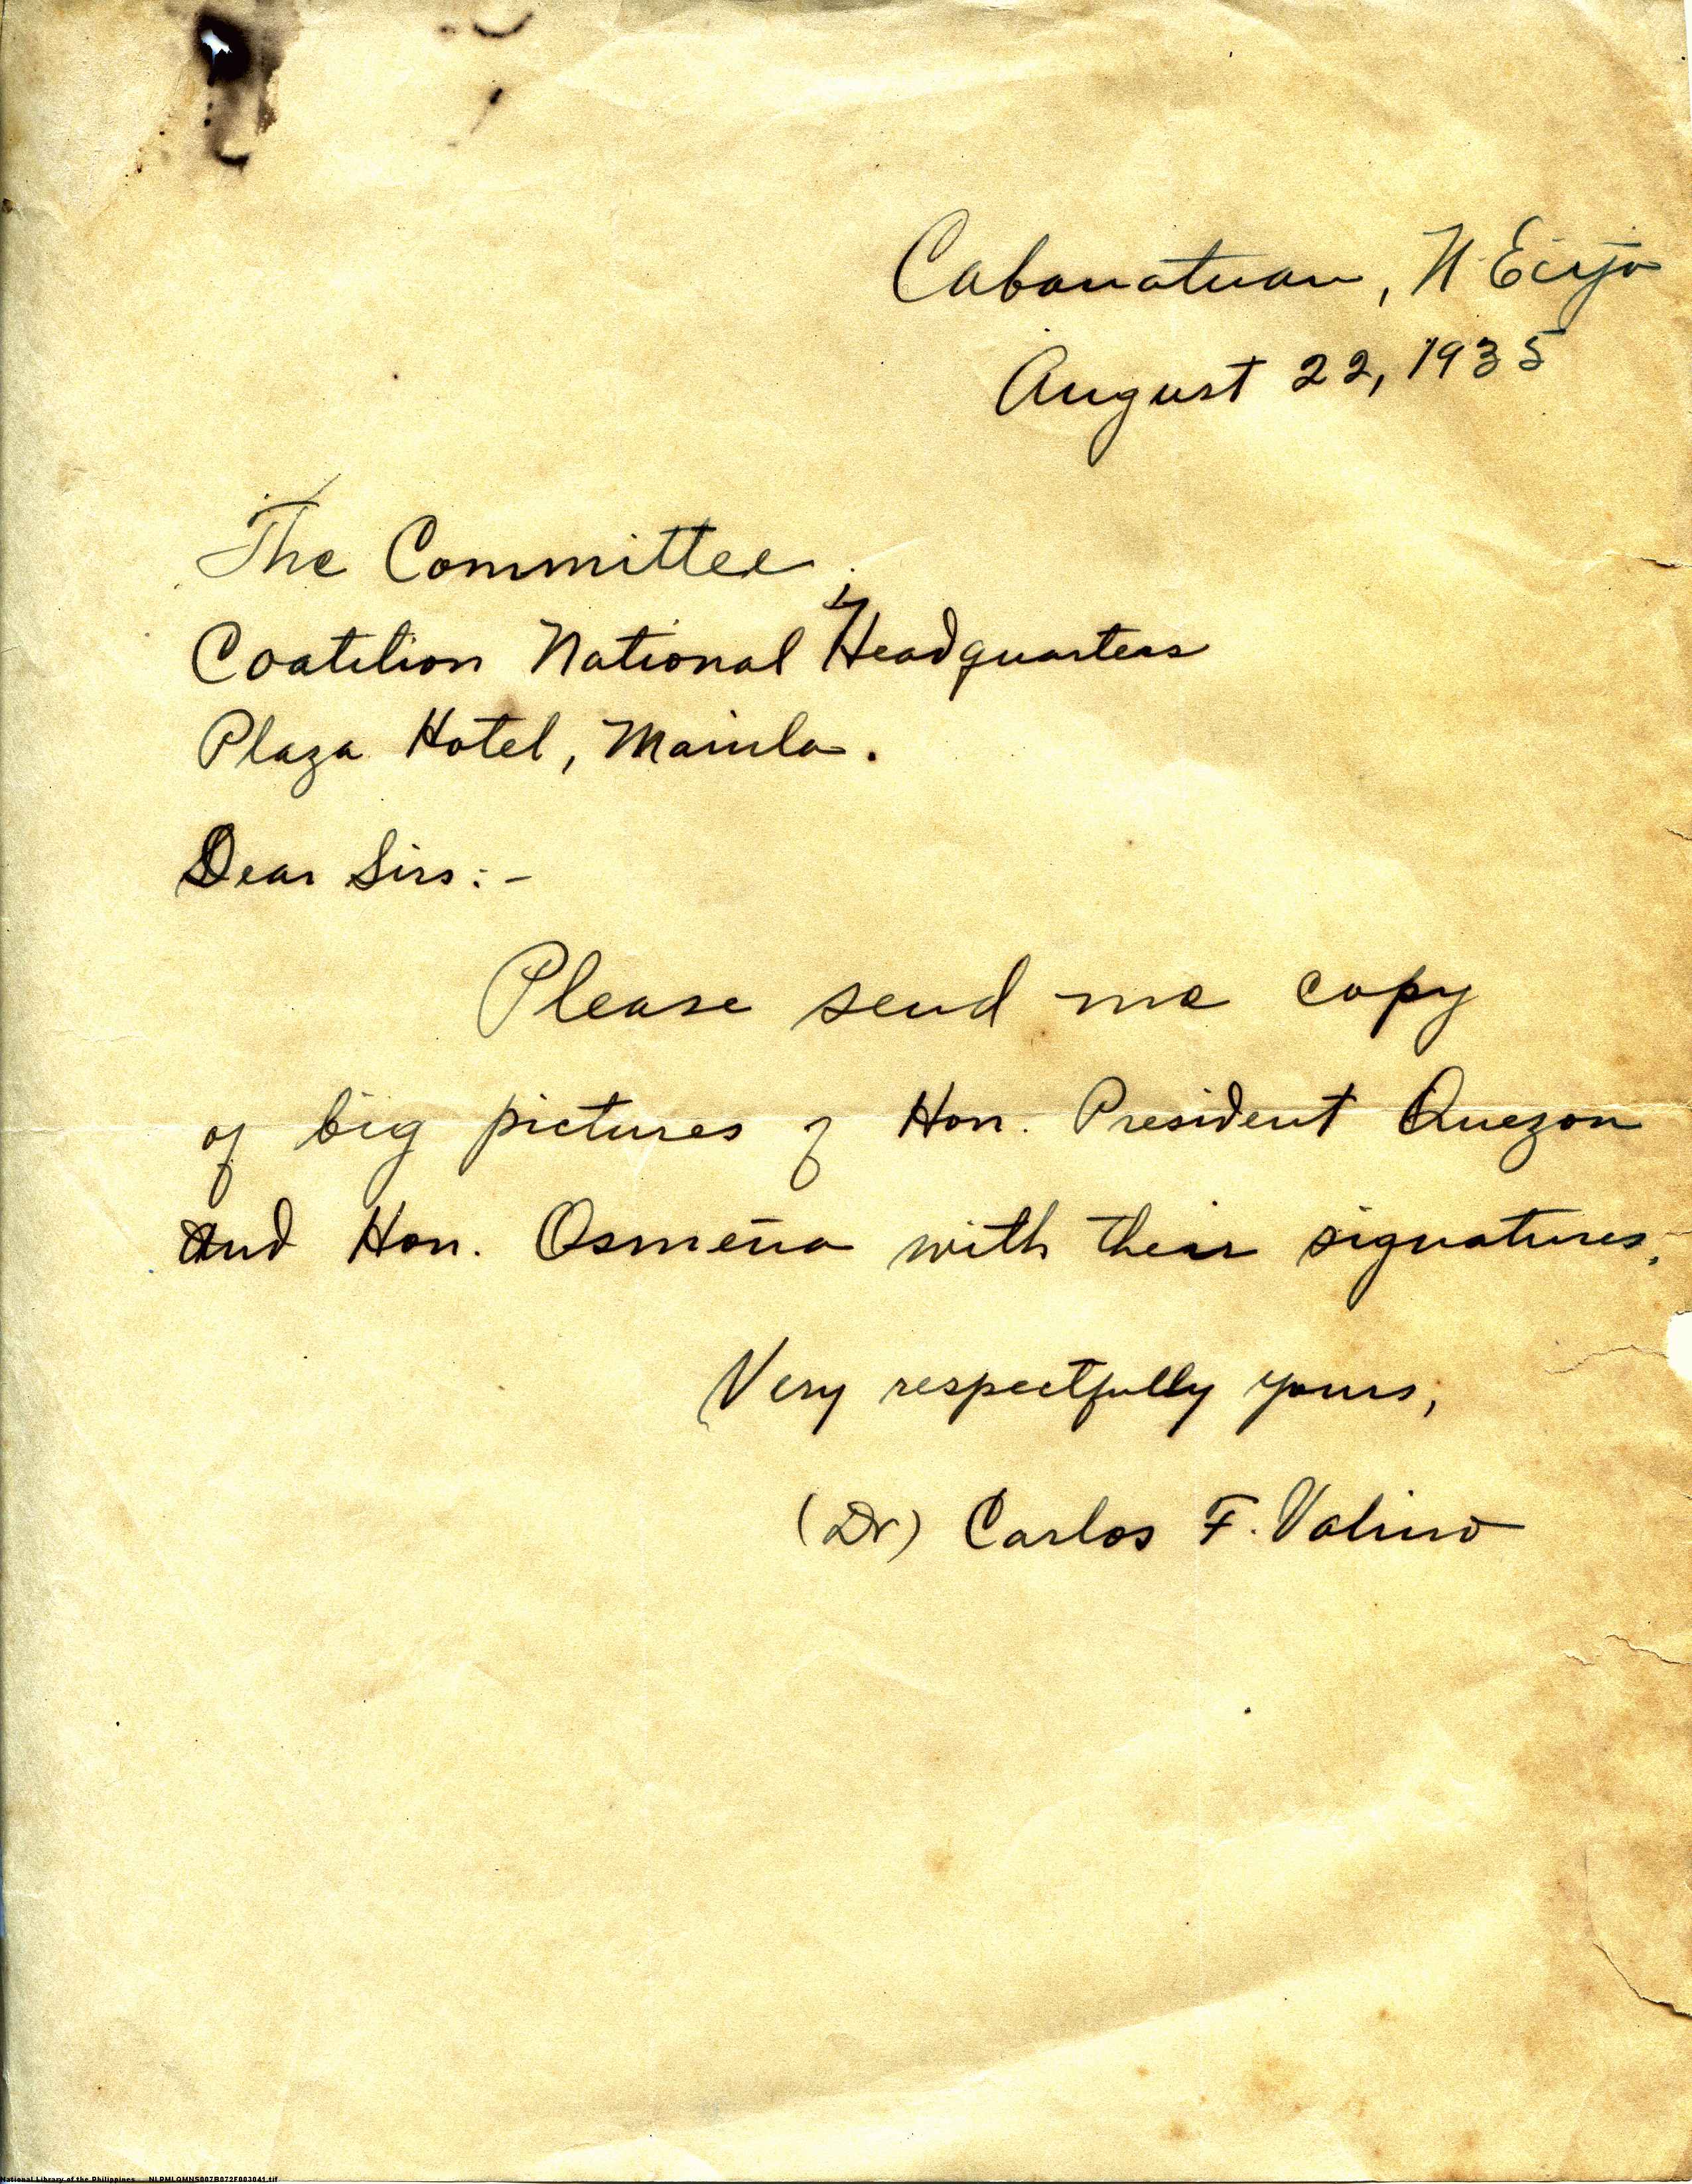 Cabanatuan, N. Ecija
August 22, 1935
The Committee
Coatilion National Headquarters
Plaza Hotel, Mainla.
Dear Sirs:-
Please send me copy
of big pictures of Hon. President Quezon
and Hon. Osmeña with their signatures.
Very respectfully yours,
(Dr) Carlos F. Valino
National Library of the Philippines NLPMLQMNS007B072F003041.tif